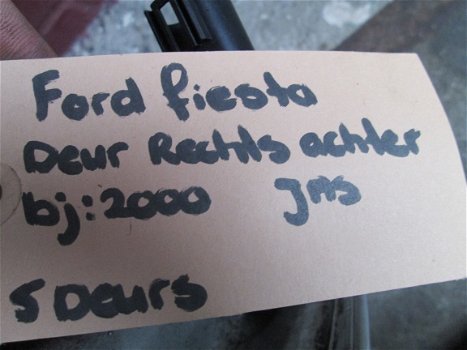 Ford fiesta
Deur Rechts achter
bj:2000 JAS
5 Deurs